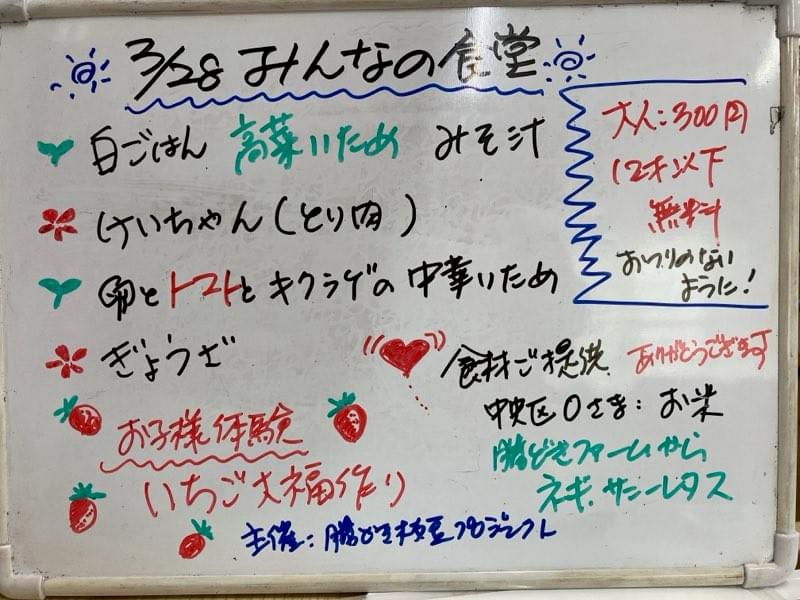 3/28 みんなの食堂
白ごはん 高菜いため みそ汁
けいちゃん(とり肉)
卵とトマトとキクラゲの中華いため
ぎょうざ
大人:300円
12才以下
無料
おつりのない
ように!
食材ご提供 ありがとうございます
中央区Oさま:お米
勝どきファームから
ネギ.サニーレタス
お子様体験
いちご大福作り
主催:勝どき枝豆プロジェクト